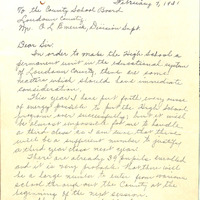 February 9, 19
To the County School Board
Loudoun County
Mr. O. L. Emerick, Division Supt.
Dear Sir:
In order to make the High School a
permanent unit in the educational system
of Loudoun County, there are some
matters which should have immediate
consideration.
This year I have put forth every ounce
of energy possible to put the High School
program over successfully; but it will
be almost impossible for me to handle
a third class as I am sure that there
will be a sufficient number to justify
a third year class next year.
There are already 39 pupils enrolled
and it is very probable that there will
be a large number to enter from various
schools throughout the County at the
beginning of the next session.